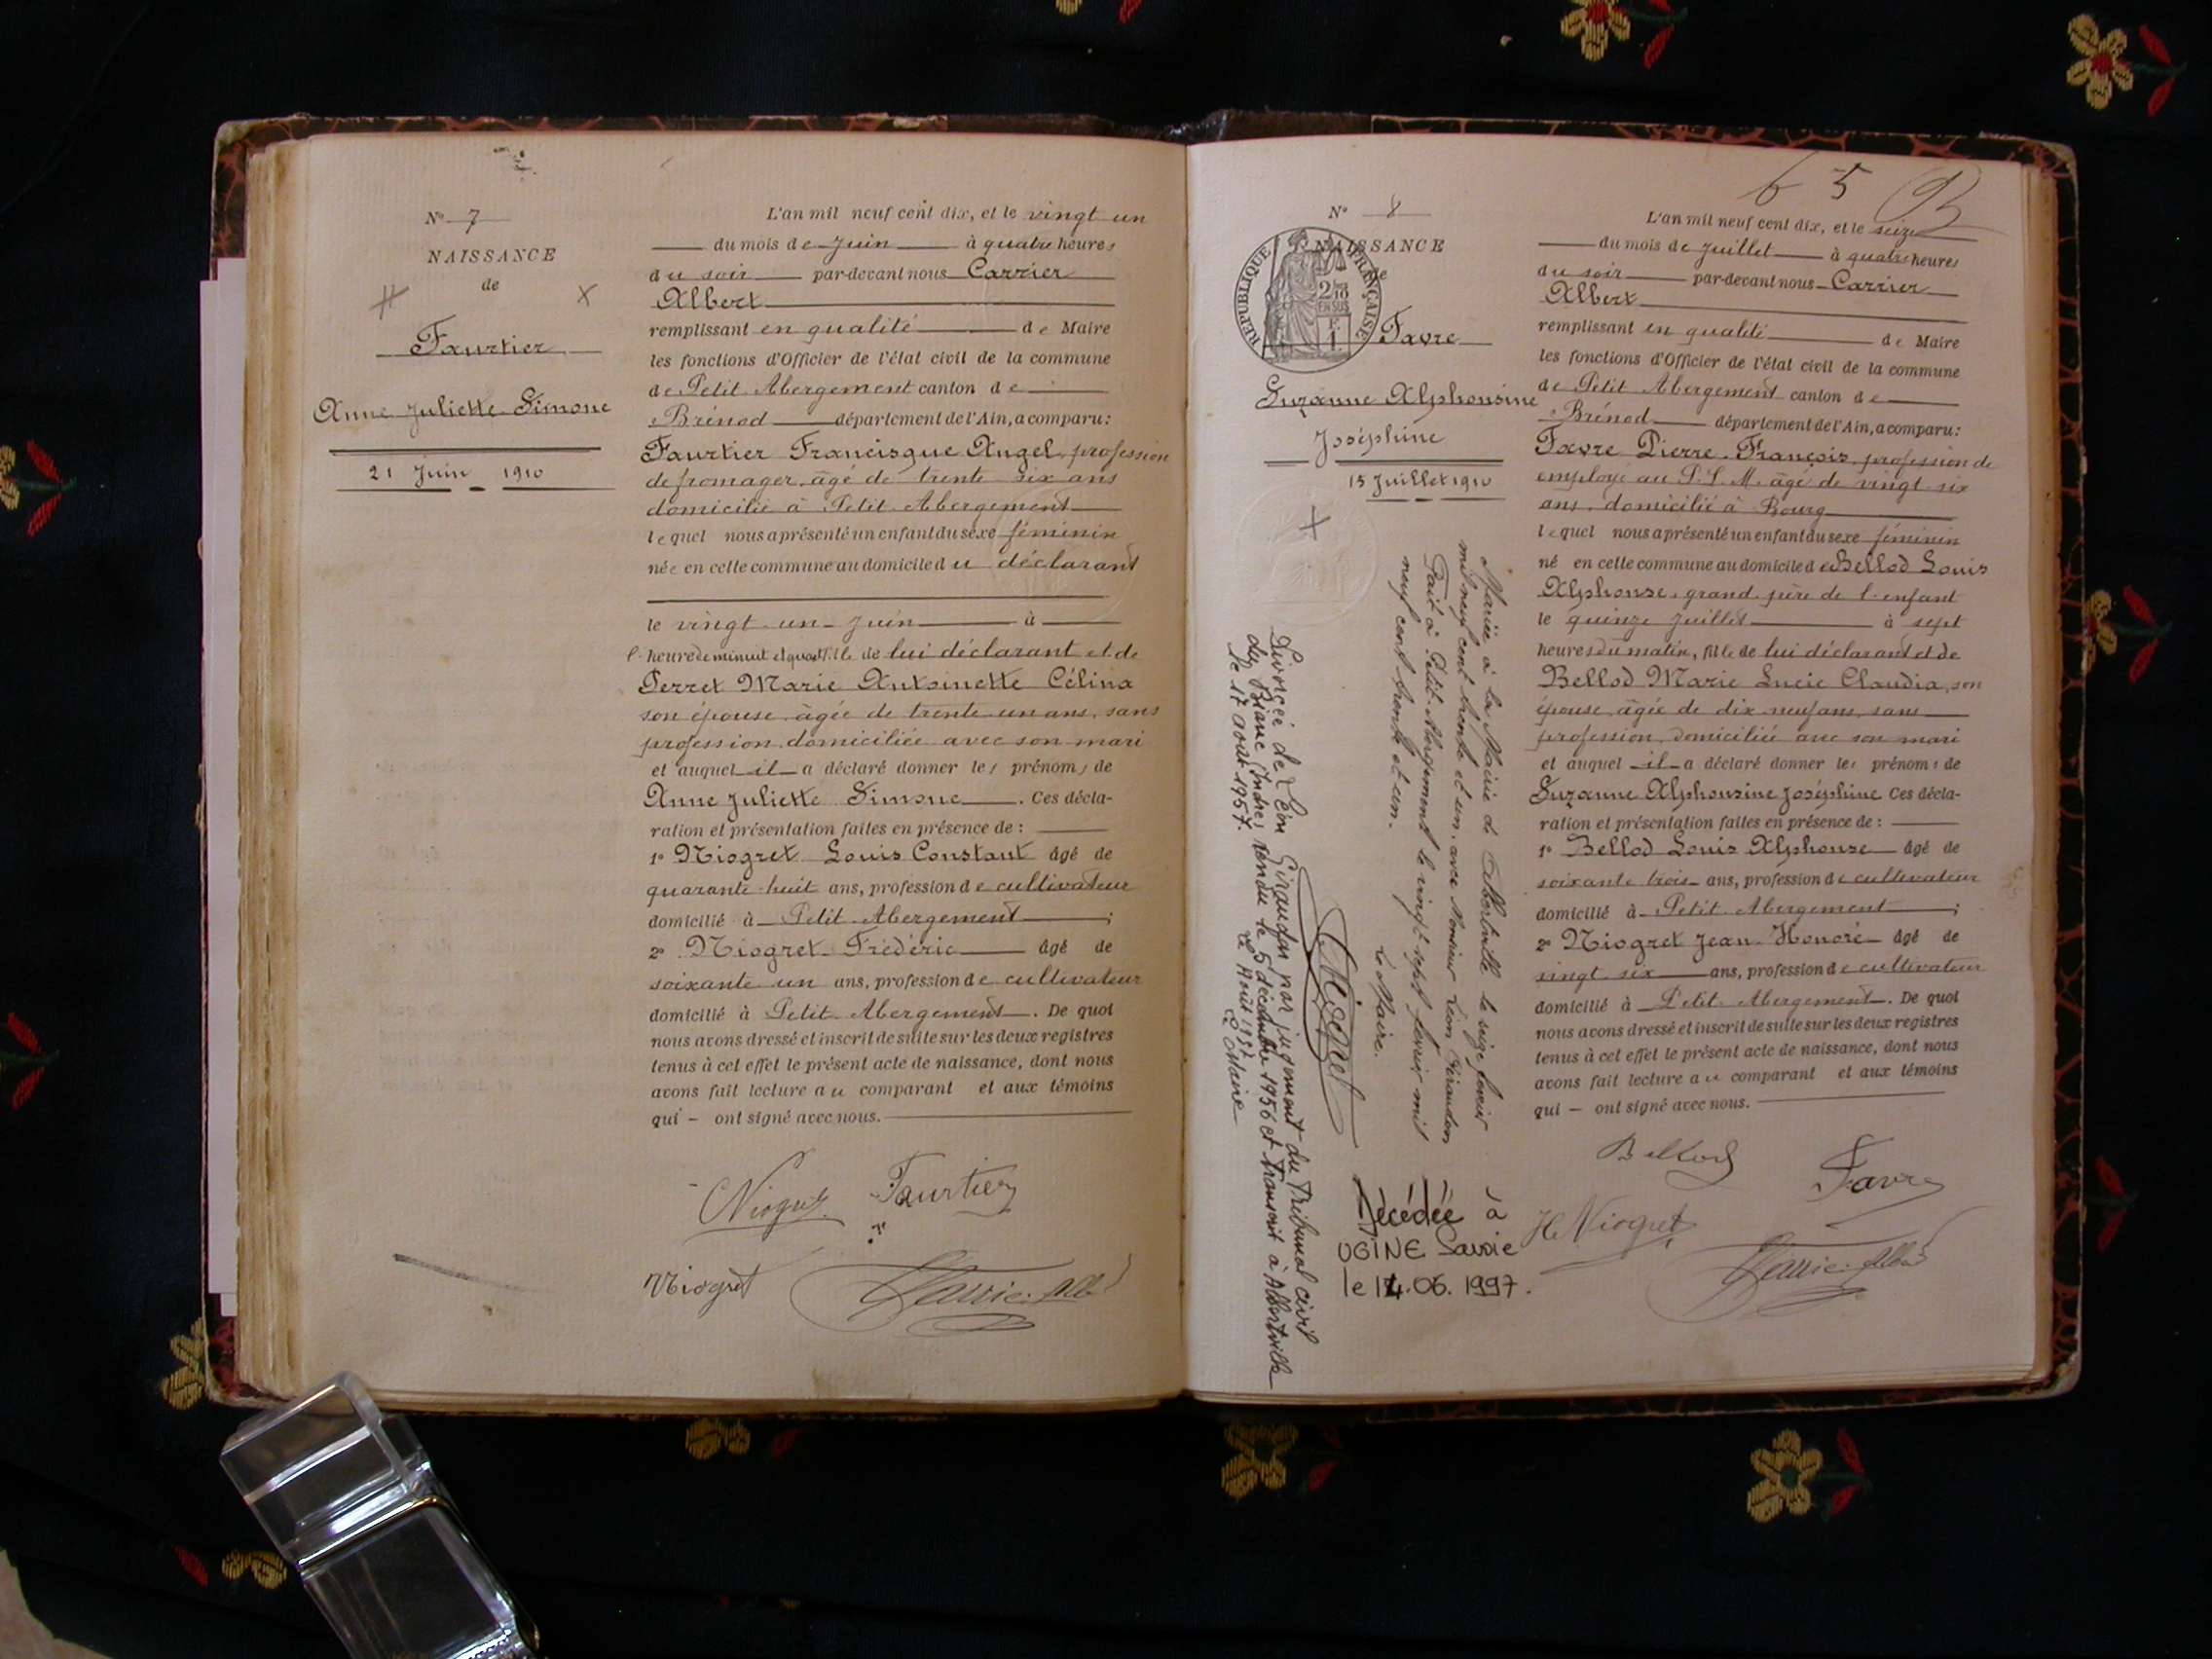 Nº 7
NAISSANCE
de
Faurtier
Anne Juliette Simone
21 Juin 1910
L'an mil neuf cent dix, et le vingt un
du mois de Juin à quatre heures
du soir par-devant nous Carrier
Albert
remplissant en qualité de Maire
les fonctions d'Officier de l'état civil de la commune
de Petit Abergement canton de
Brénod département de l'Ain, a comparu:
Faurtier Francisque Angel, profession
de fromager, âgé de trente six ans
domicilié à Petit Abergement
lequel nous a présenté un enfant du sexe féminin
née en cette commune au domicile du déclarant
le vingt un Juin à
heure de minuit et quart, fille de lui déclarant et de
Perret Marie Antoinette Célina
son épouse, âgée de trente un ans, sans
profession, domiciliée avec son mari
et auquel il a déclaré donner les prénoms de
Anne Juliette Simone. Ces décla-
ration et présentation faites en présence de :
1º Niogret Louis Constant âgé de
quarante huit ans, profession de cultivateur
domicilié à Petit Abergement ;
2º Niogret Frédéric âgé de
soixante un ans, profession de cultivateur
domicilié à Petit Abergement. De quoi
nous avons dressé et inscrit de suite sur les deux registres
tenus à cet effet le présent acte de naissance, dont nous
avons fait lecture au comparant et aux témoins
qui – ont signé avec nous.
Niogret Faurtier
Niogret Carrier Albt
6 5
Nº 8
NAISSANCE
de
REPUBLIQUE FRANÇAISE
Favre
Suzanne Alphonsine
Joséphine
15 Juillet 1910
Mariée à la Mairie de Albertville le seize février
mil neuf cent trente et un avec Monsieur Léon Giraudon
Fait à Petit Abergement le vingt sept février mil
neuf cent trente et un.
Le Maire.
Niogret
Divorcée de Léon Giraudon par jugement du Tribunal civil
du Blanc (Indre) rendu le 5 décembre 1956 et transcrit à Albertville
le 17 août 1957.
Le Août 1957
Le Maire
Décédée à
UGINE Savoie
le 14.06.1997.
L'an mil neuf cent dix, et le seize
du mois de Juillet à quatre heures
du soir par-devant nous Carrier
Albert
remplissant en qualité de Maire
les fonctions d'Officier de l'état civil de la commune
de Petit Abergement canton de
Brénod département de l'Ain, a comparu:
Favre Pierre François, profession de
employé au P. L. M. âgé de vingt six
ans, domicilié à Bourg
lequel nous a présenté un enfant du sexe féminin
né en cette commune au domicile de Bellod Louis
Alphonse, grand père de l'enfant
le quinze Juillet à sept
heures du matin, fille de lui déclarant et de
Bellod Marie Lucie Claudia, son
épouse, âgée de dix neuf ans, sans
profession, domiciliée avec son mari
et auquel il a déclaré donner les prénoms de
Suzanne Alphonsine Joséphine Ces décla-
ration et présentation faites en présence de :
1º Bellod Louis Alphonse âgé de
soixante trois ans, profession de cultivateur
domicilié à Petit Abergement ;
2º Niogret Jean Honoré âgé de
vingt six ans, profession de cultivateur
domicilié à Petit Abergement. De quoi
nous avons dressé et inscrit de suite sur les deux registres
tenus à cet effet le présent acte de naissance, dont nous
avons fait lecture au comparant et aux témoins
qui – ont signé avec nous.
Bellod Favre
H Niogret Carrier Albt